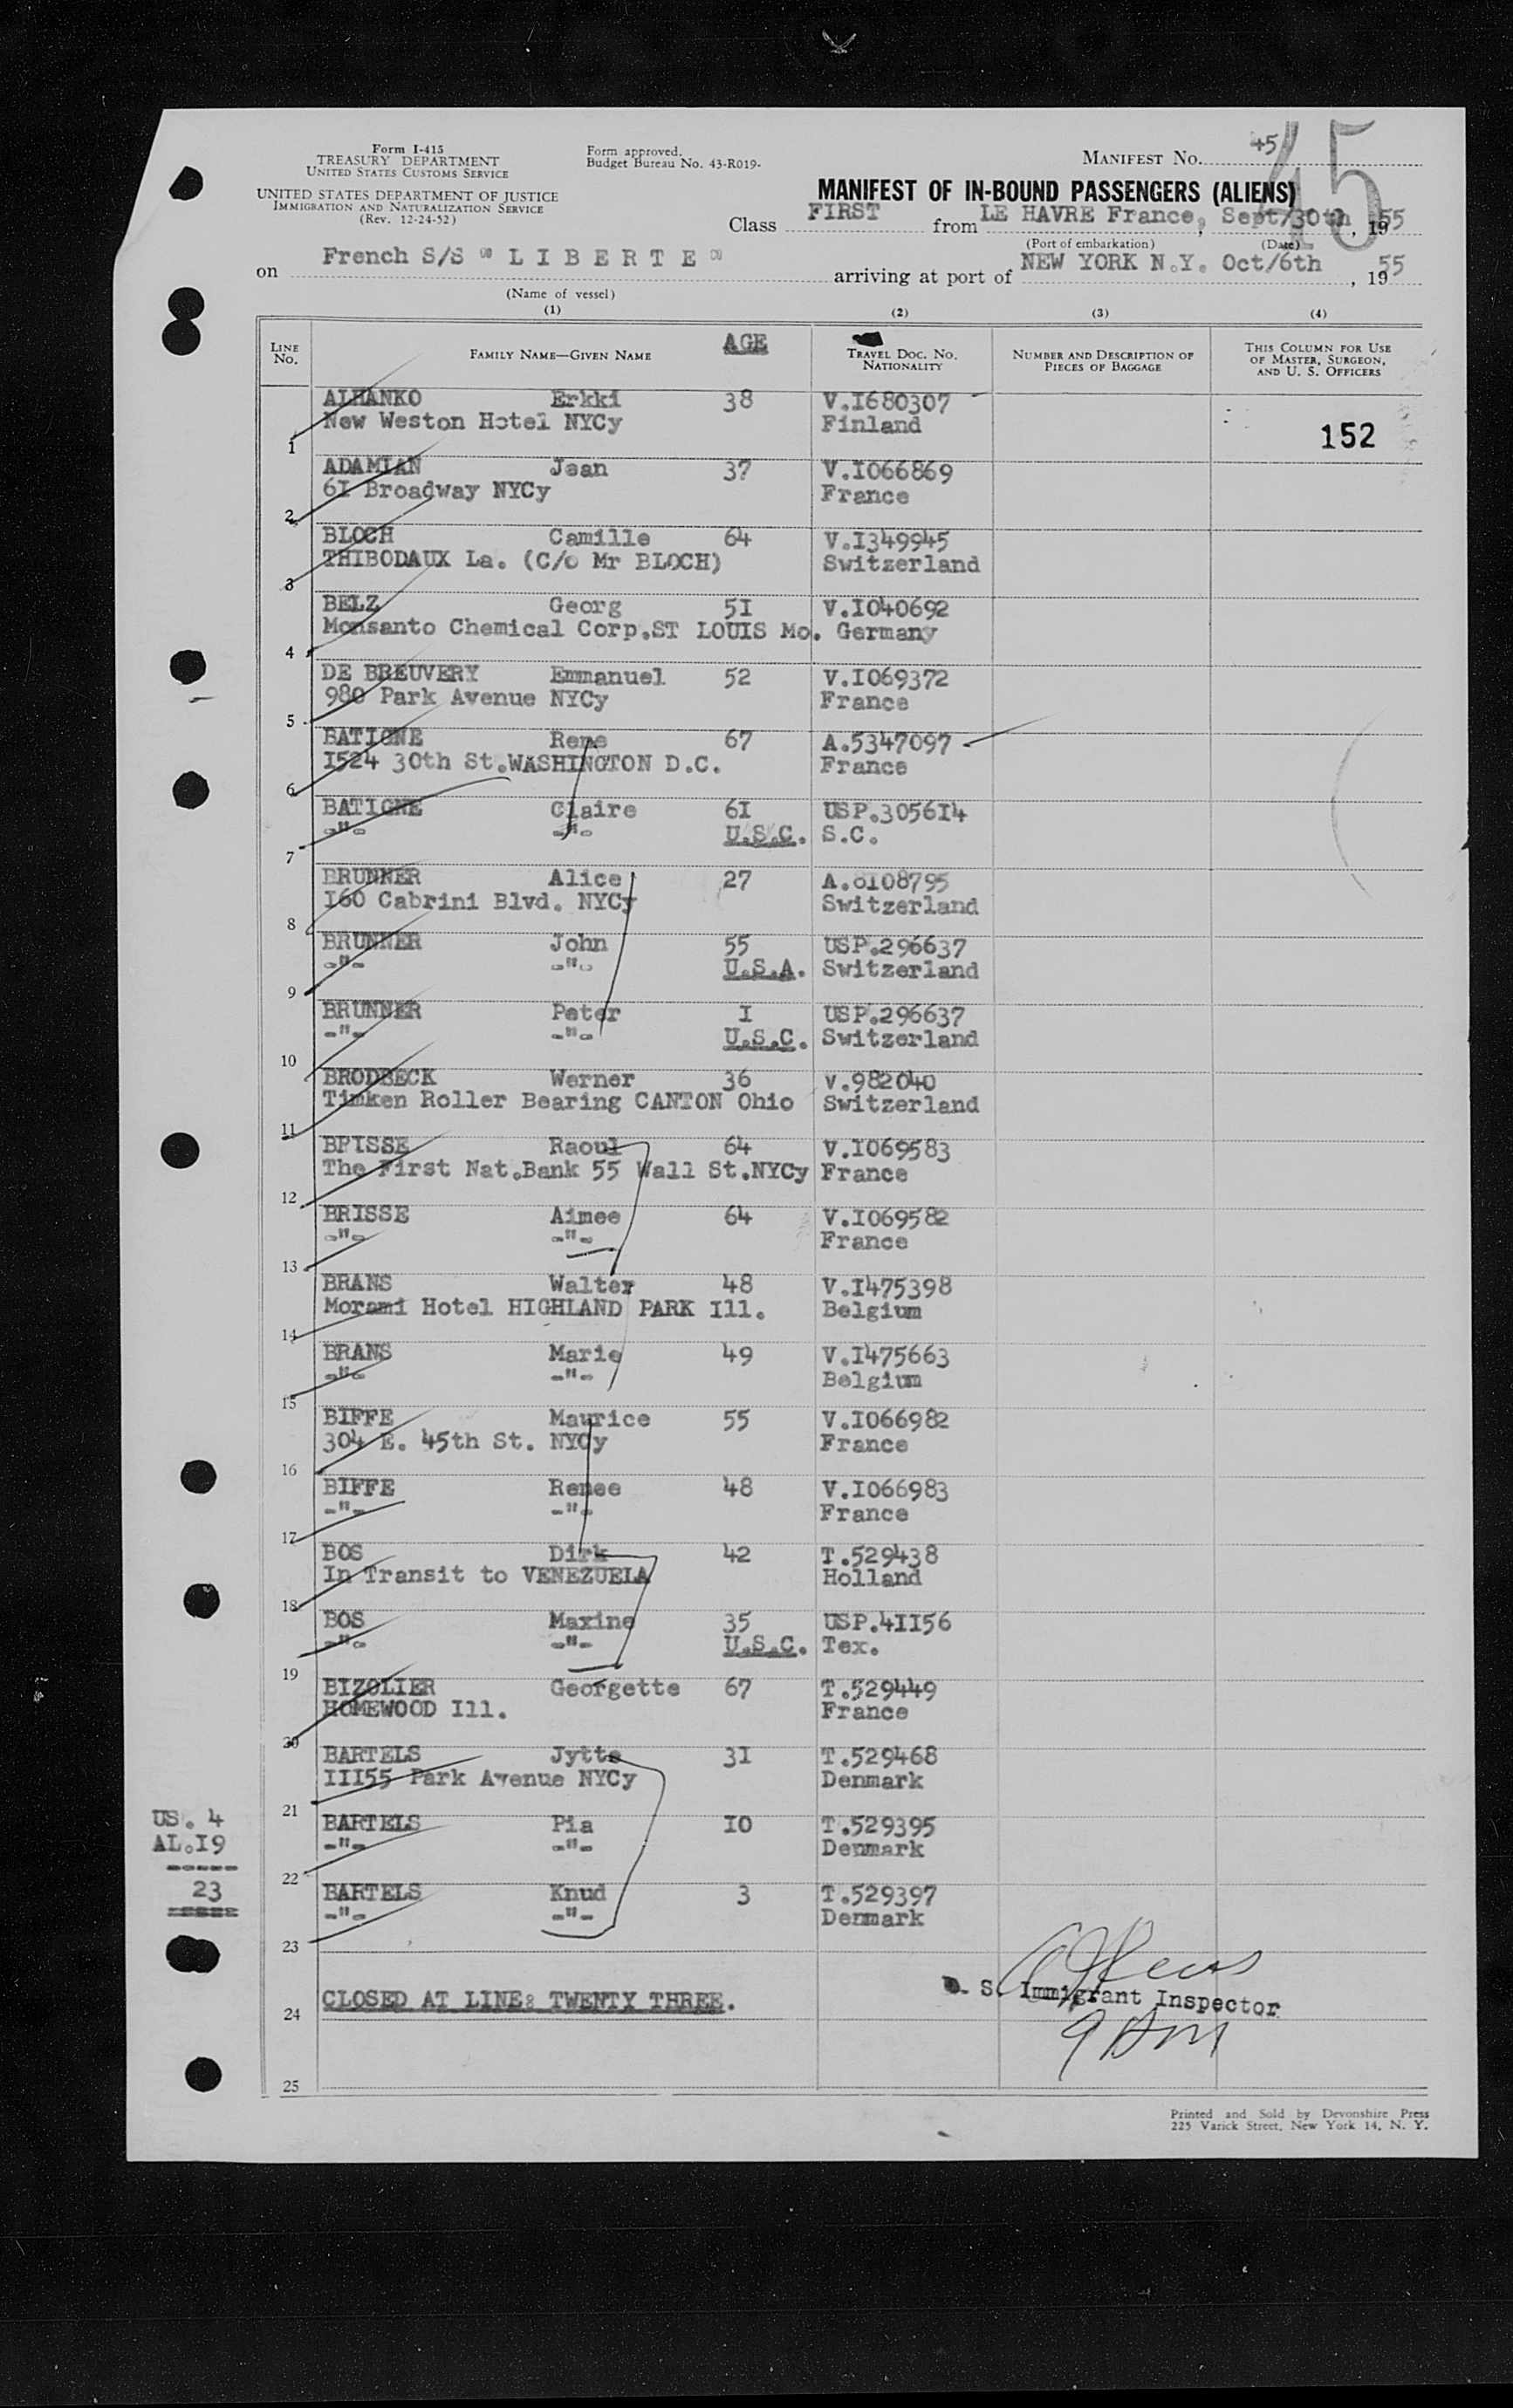 Form I-415
TREASURY DEPARTMENT
UNITED STATES CUSTOMS SERVICE
UNITED STATES DEPARTMENT OF JUSTICE
IMMIGRATION AND NATURALIZATION SERVICE
(Rev. 12-24-52)
Form approved.
Budget Bureau No. 43-R019-
MANIFEST NO. 45
45
MANIFEST OF IN-BOUND PASSENGERS (ALIENS)
Class FIRST from LE HAVRE France, Sept/30th, 1955
(Port of embarkation) (Date)
on French S/S " L I B E R T E " arriving at port of NEW YORK N.Y. Oct/6th, 1955
(Name of vessel)
(1) (2) (3) (4)
LINE NO. FAMILY NAME—GIVEN NAME AGE TRAVEL DOC. NO. NATIONALITY NUMBER AND DESCRIPTION OF PIECES OF BAGGAGE THIS COLUMN FOR USE OF MASTER, SURGEON, AND U. S. OFFICERS
ALHANKO Erkki 38 V.I680307
1 New Weston Hotel NYCy Finland 152
ADAMIAN Jean 37 V.I066869
2 6I Broadway NYCy France
BLOCH Camille 64 V.I349945
3 THIBODAUX La. (C/o Mr BLOCH) Switzerland
BELZ Georg 5I V.I040692
4 Monsanto Chemical Corp.ST LOUIS Mo. Germany
DE BREUVERY Emmanuel 52 V.I069372
5 980 Park Avenue NYCy France
BATIGNE Rene 67 A.5347097
6 I524 30th St.WASHINGTON D.C. France
BATIGNE Claire 6I USP.3056I4
7 -"- -"- U.S.C. S.C.
BRUNNER Alice 27 A.8108795
8 I60 Cabrini Blvd. NYCy Switzerland
BRUNNER John 55 USP.296637
9 -"- -"- U.S.A. Switzerland
BRUNNER Peter I USP.296637
10 -"- -"- U.S.C. Switzerland
BRODBECK Werner 36 V.982040
11 Timken Roller Bearing CANTON Ohio Switzerland
BRISSE Raoul 64 V.I069583
12 The First Nat.Bank 55 Wall St.NYCy France
BRISSE Aimee 64 V.I069582
13 -"- -"- France
BRANS Walter 48 V.I475398
14 Morami Hotel HIGHLAND PARK Ill. Belgium
BRANS Marie 49 V.I475663
15 -"- -"- Belgium
BIFFE Maurice 55 V.I066982
16 304 E. 45th St. NYCy France
BIFFE Renee 48 V.I066983
17 -"- -"- France
BOS Dirk 42 T.529438
18 In Transit to VENEZUELA Holland
BOS Maxine 35 USP.4II56
19 -"- -"- U.S.C. Tex.
BIZOLIER Georgette 67 T.529449
20 HOMEWOOD Ill. France
BARTELS Jytte 3I T.529468
21 III55 Park Avenue NYCy Denmark
US. 4
AL.I9
-----
23
=====
BARTELS Pia I0 T.529395
22 -"- -"- Denmark
BARTELS Knud 3 T.529397
23 -"- -"- Denmark
24 CLOSED AT LINE: TWENTY THREE.
S. Immigrant Inspector
9 AM
25
Printed and Sold by Devonshire Press
225 Varick Street, New York 14, N. Y.